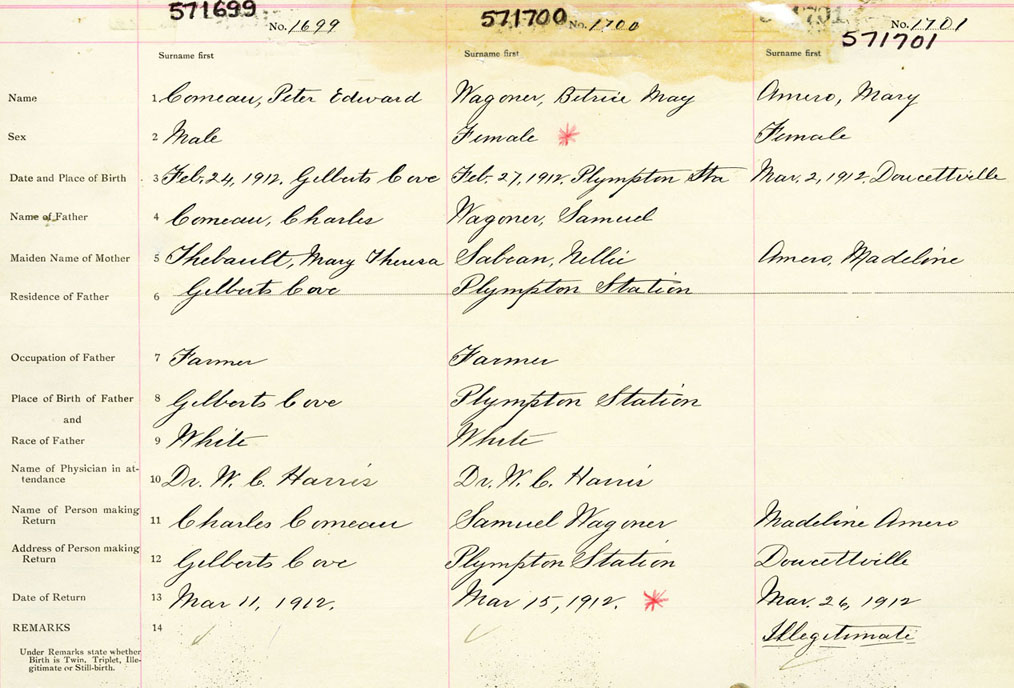 571699 571700 1701
No. 1699 No. 1700 No. 1701
571701
Surname first Surname first Surname first
Name 1 Comeau, Peter Edward Wagoner, Betrice May Amero, Mary
Sex 2 Male Female Female
Date and Place of Birth 3 Feb. 24, 1912. Gilberts Cove Feb. 27, 1912. Plympton Sta Mar. 2, 1912. Doucettville
Name of Father 4 Comeau, Charles Wagoner, Samuel
Maiden Name of Mother 5 Thebault, Mary Theresa Sabean, Nellie Amero, Madeline
Residence of Father 6 Gilberts Cove Plympton Station
Occupation of Father 7 Farmer Farmer
Place of Birth of Father 8 Gilberts Cove Plympton Station
and
Race of Father 9 White White
Name of Physician in at-
tendance 10 Dr. W. C. Harris Dr. W. C. Harris
Name of Person making
Return 11 Charles Comeau Samuel Wagoner Madeline Amero
Address of Person making
Return 12 Gilberts Cove Plympton Station Doucettville
Date of Return 13 Mar 11, 1912. Mar 15, 1912. Mar. 26, 1912
REMARKS 14 Illegitimate
Under Remarks state whether
Birth is Twin, Triplet, Ille-
gitimate or Still-birth.